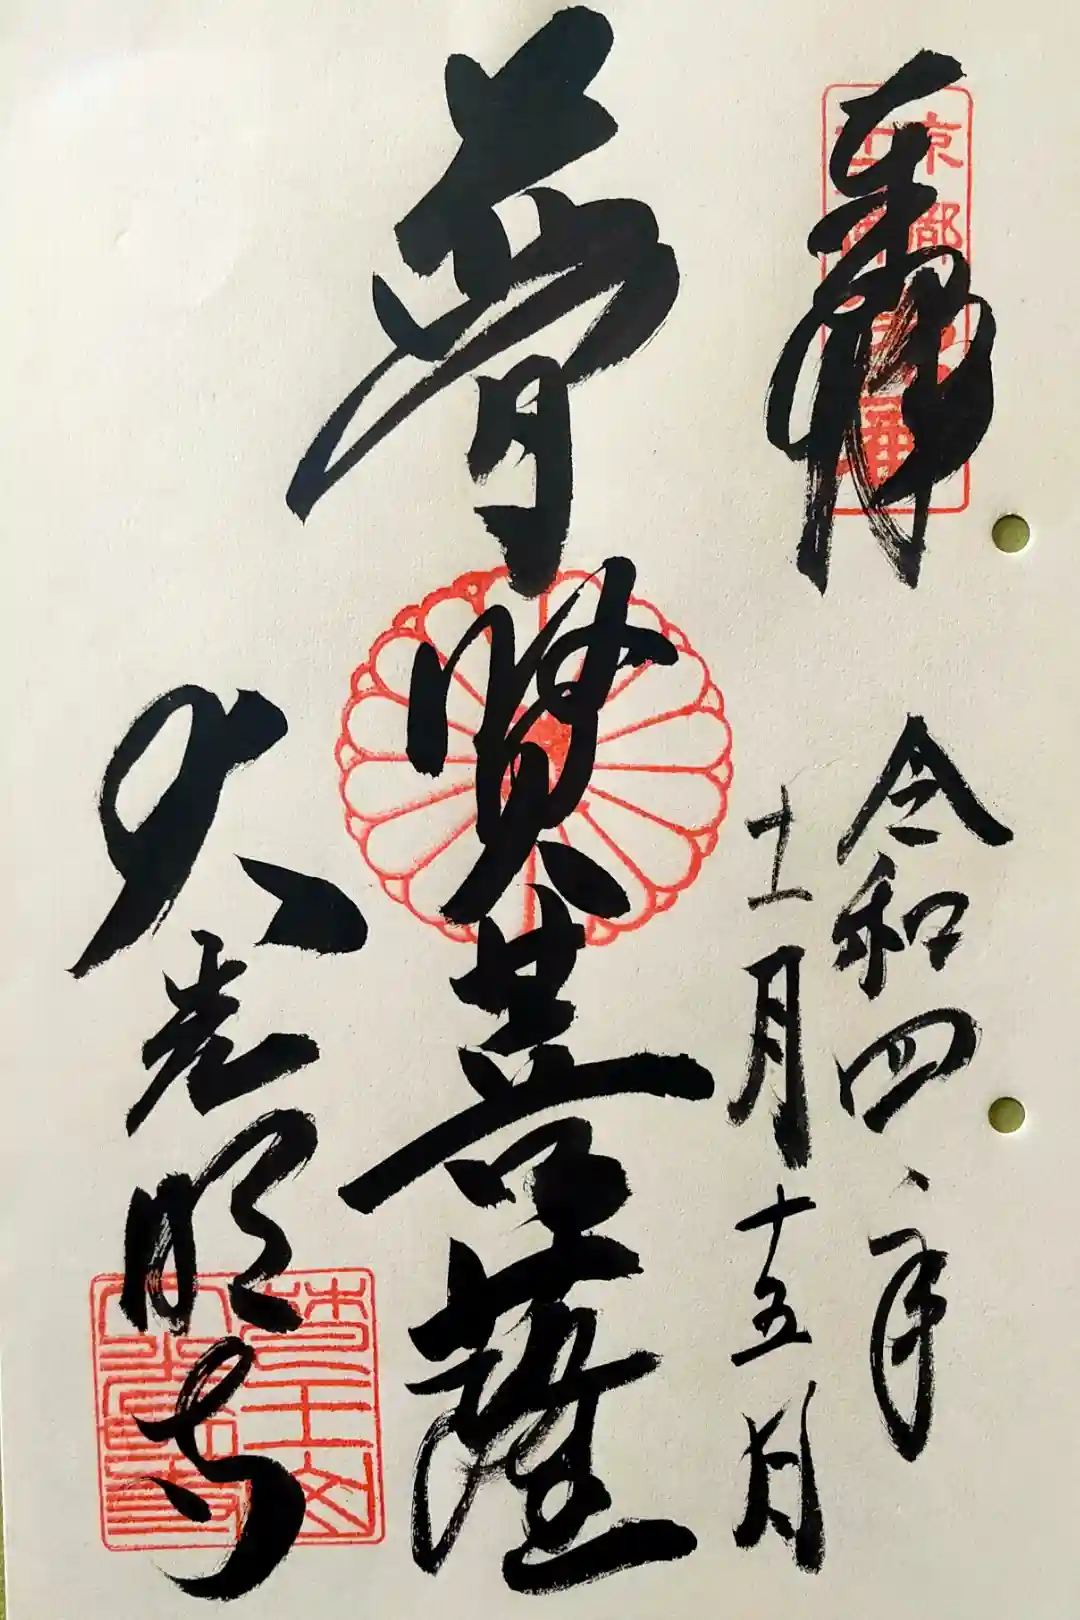 奉拝
京都
令和四年
十二月十五日
普賢菩薩
大光明寺